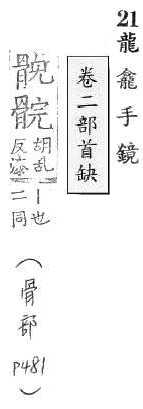 21 龍龕手鏡
卷二部首缺
胡乱
反
丨也
二同
（骨部 P481）